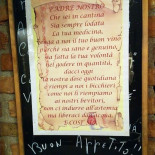 PADRE NOSTRO
Che sei in cantina
Sia sempre lodata
La tua medicina,
venga a noi il tuo buon vino
perchè sia sano e genuino,
sia fatta la tua volontà
nel godere in quantità,
dacci oggi
la nostra dose quotidiana
e riempi a noi i bicchieri
come noi li riempiamo
ai nostri bevitori,
non ci indurre in
ma liberaci dall'acqua
E COSÌ
BUON APPETITO!!